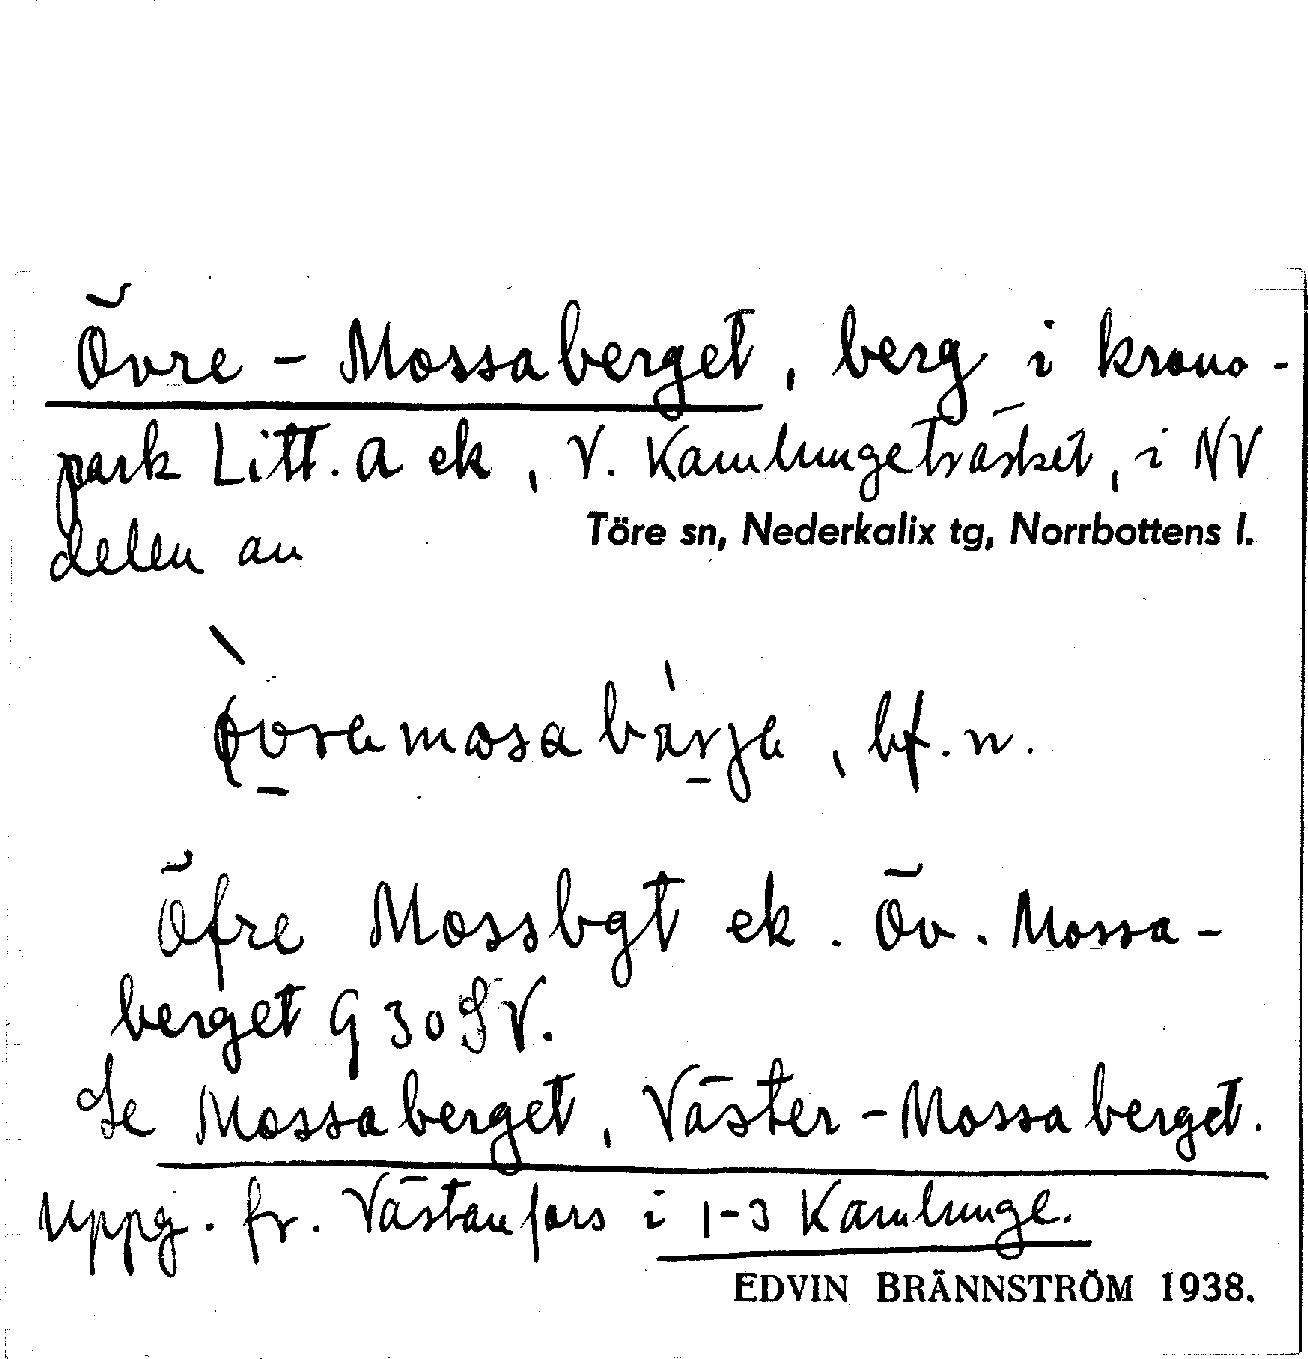 Övre-Mossaberget, berg i krono-
park Litt. A ek, V. Kamlungeträsket, i NV
delen av
Töre sn, Nederkalix tg, Norrbottens l.
bf. n.
Öfre Mossbgt ek. Öv. Mossa-
berget G 30 SV.
Se Mossaberget, Väster-Mossaberget.
Uppg. fr. Västanfors i 1-3 Kamlunge.
EDVIN BRÄNNSTRÖM 1938.